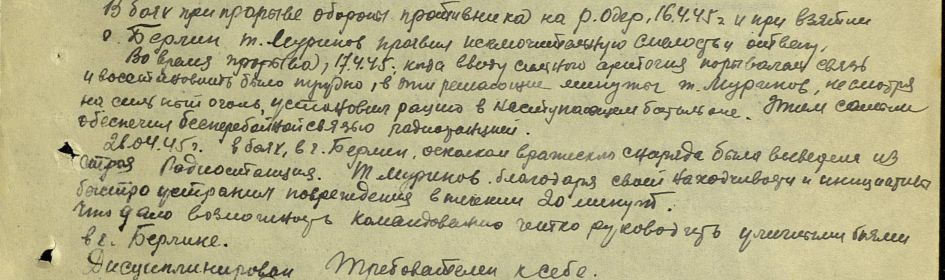 В боях при прорыве обороны противника на р. Одер, 16.4.45 г и при взятии
г. Берлин т. Муринов проявил исключительную смелость и отвагу.
Во время прорыва, 17.4.45, когда ввиду сильного артогня порывалась связь
и восстановить было трудно, в эти решающие минуты т. Муринов, несмотря
на сильный огонь, установил рацию в наступающем батальоне. Этим самым
обеспечил бесперебойной связью радиостанцией.
26.04.45 г. в боях, в г. Берлин, осколком вражеского снаряда была выведена из
строя Радиостанция. Т. Муринов благодаря своей находчивости и инициативы
быстро устранил повреждения в течении 20 минут.
Что дало возможность командованию четко руководить уличными боями
в г. Берлине.
Дисциплинирован Требователен к себе.